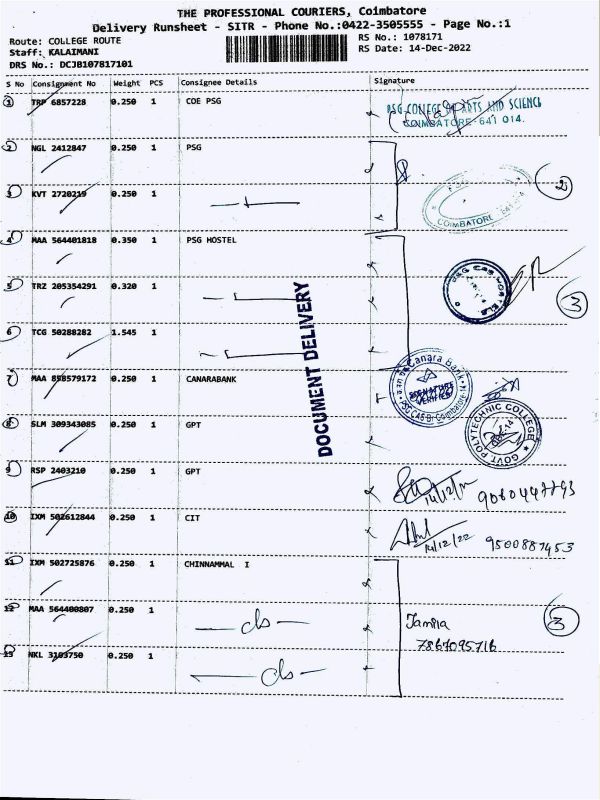 THE PROFESSIONAL COURIERS, Coimbatore
Delivery Runsheet - SITR - Phone No.:0422-3505555 - Page No.:1
Route: COLLEGE ROUTE
Staff: KALAIMANI
DRS No.: DCJB107817101
RS No.: 1078171
RS Date: 14-Dec-2022
S No Consignment No Weight PCS Consignee Details Signature
1 TRP 6857228 0.250 1 COE PSG
PSG COLLEGE OF ARTS AND SCIENCE
COIMBATORE-641 014.
2 NGL 2412847 0.250 1 PSG
3 KVT 2720219 0.250 1
COIMBATORE
2
4 MAA 564401818 0.350 1 PSG HOSTEL
5 TRZ 205354291 0.320 1
PSG CAS HOSTELS
3
6 TCG 50288282 1.545 1
DOCUMENT DELIVERY
7 MAA 858579172 0.250 1 CANARABANK
Canara Bank
SIGNATURE
VERIFIED
PSG CAS Br Coimbatore-14
8 SLM 309343085 0.250 1 GPT
GOVT POLYTECHNIC COLLEGE
9 RSP 2403210 0.250 1 GPT
14/12/22
10 IXM 502612844 0.250 1 CIT
14/12/22 9500887453
11 IXM 502725876 0.250 1 CHINNAMMAL I
12 MAA 564400807 0.250 1 do
3
7867095716
13 NKL 3103750 0.250 1 do